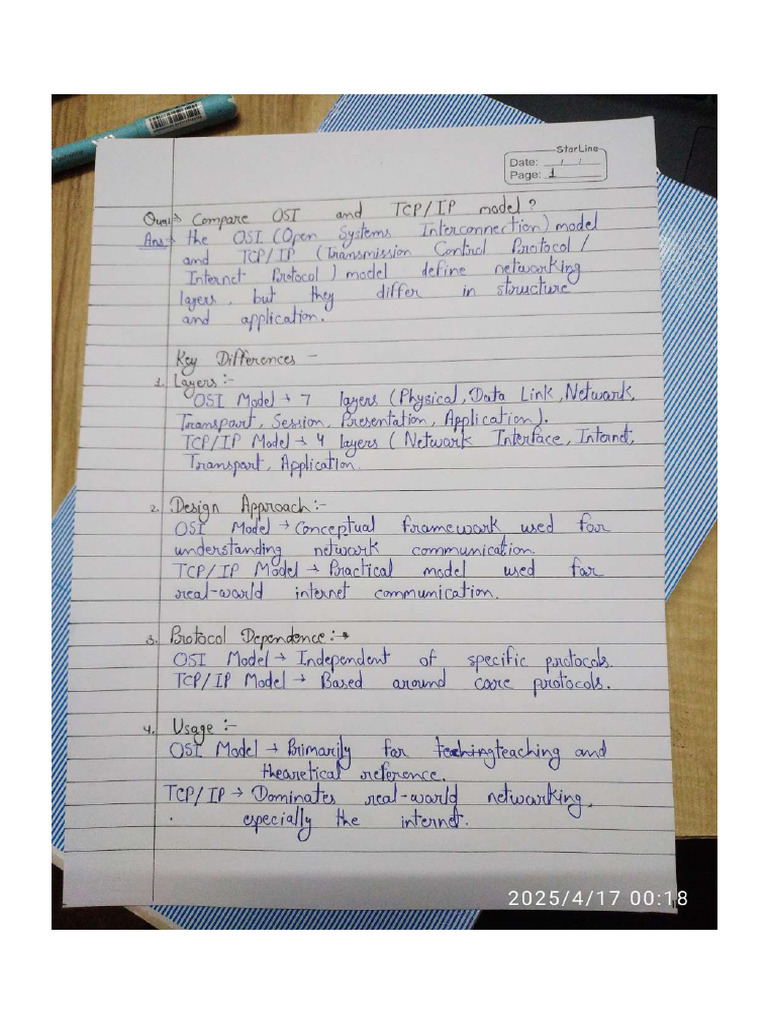 StarLine
Date: __/__/__
Page: 1
Ques:→ Compare OSI and TCP/IP model?
Ans:→ the OSI (Open Systems Interconnection) model
and TCP/IP (Transmission Control Protocol/
Internet Protocol) model define networking
layers, but they differ in structure
and application.
Key Differences –
1. Layers:-
OSI Model → 7 layers (Physical, Data Link, Network,
Transport, Session, Presentation, Application).
TCP/IP Model → 4 layers (Network Interface, Internet,
Transport, Application.
2. Design Approach:-
OSI Model → Conceptual framework used for
understanding network communication.
TCP/IP Model → Practical model used for
real-world internet communication.
3. Protocol Dependence:→
OSI Model → Independent of specific protocols.
TCP/IP Model → Based around core protocols.
4. Usage:-
OSI Model → Primarily for teaching and
theoretical reference.
TCP/IP → Dominates real-world networking,
especially the internet.
2025/4/17 00:18